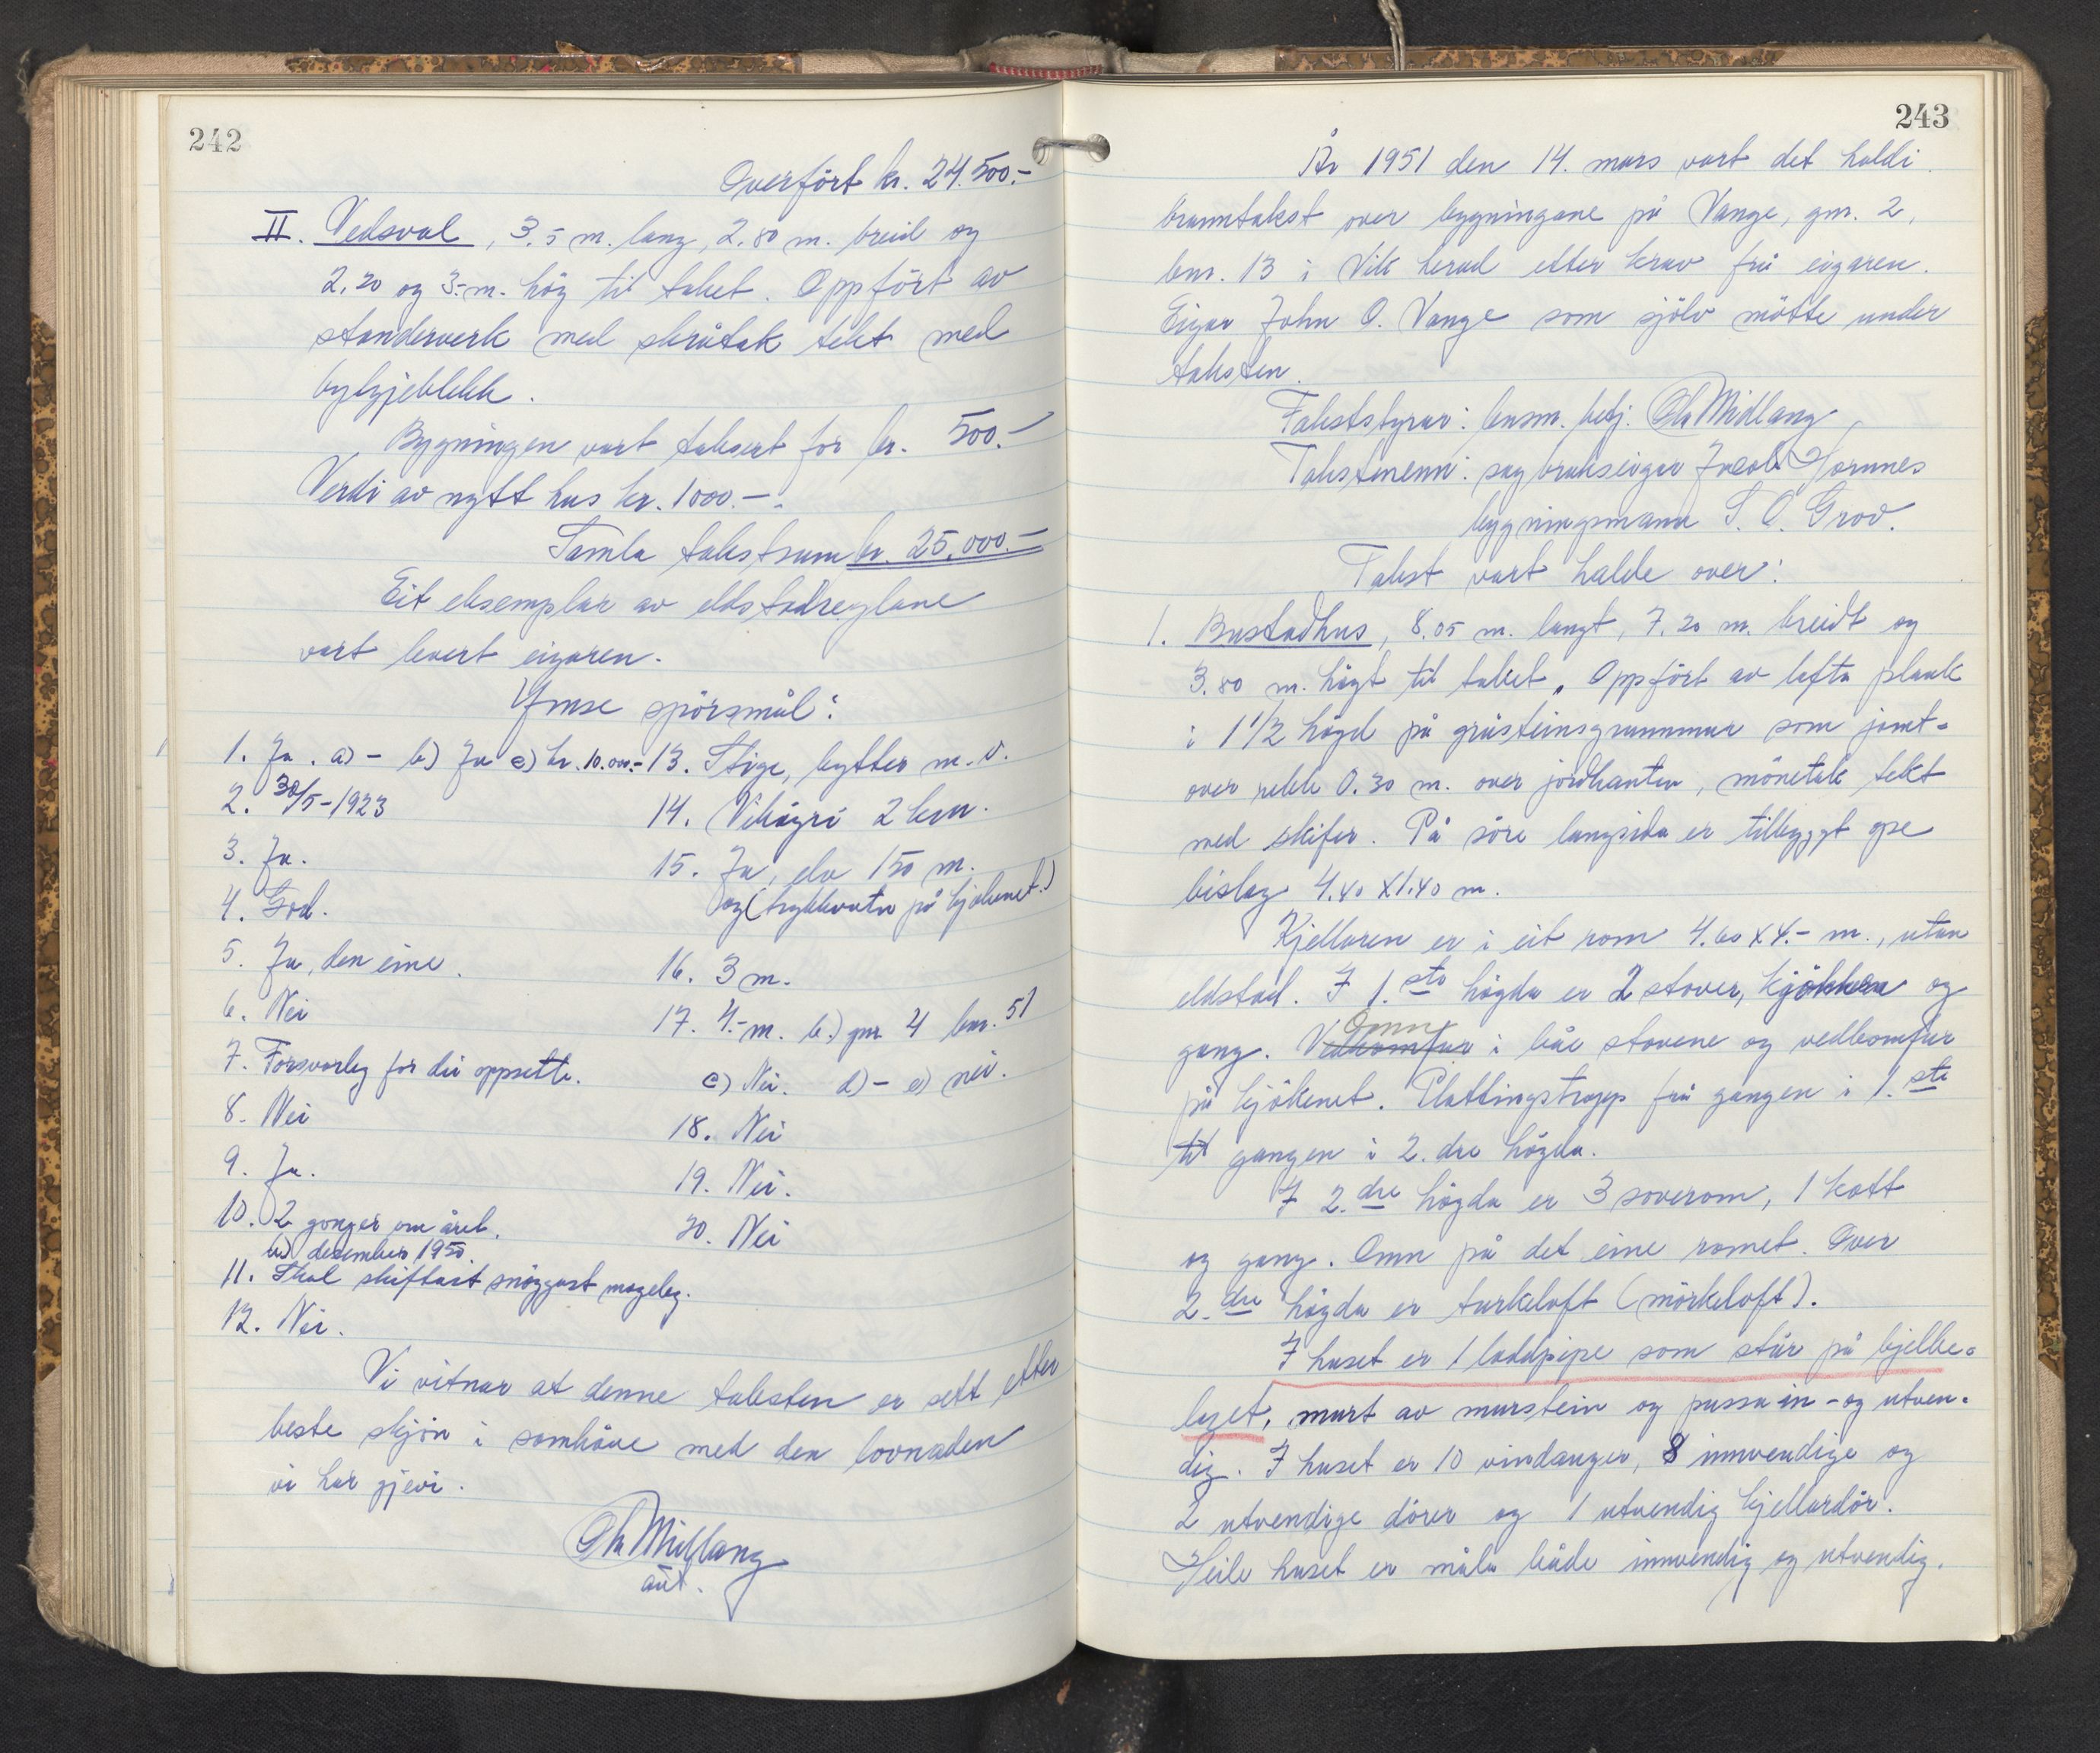 242
Overført kr. 24.500.-
II. Vedsval, 3.5 m. lang, 2.80 m. breid og
2.20 og 3.- m. høg til taket. Oppført av
standerverk med skråtak tekt med
bylgjeblekk.
Bygningen vart taksert for kr. 500.-
Verdi av nytt hus kr. 1000.-.
Samla takstsum kr. 25.000.-
Eit eksemplar av eldstadreglane
vart levert eigaren.
Ymse spörsmål:
1. Ja. a) - b) Ja c) kr. 10.000.-
2. 30/5-1923
3. Ja.
4. God.
5. Ja, den eine.
6. Nei
7. Forsvarleg for dei oppsette.
8. Nei
9. Ja.
10. 2 gonger om året.
b) desember 1950.
11. Skal skiftast snöggast mogeleg.
12. Nei.
13. Stige, bytter m.v.
14. Vikøyri 2 km.
15. Ja, elv 150 m.
og (trykkvatn på kjökenet.)
16. 3 m.
17. 4.- m. b.) gnr 4 bnr. 51
c) Nei. d) - e) nei.
18. Nei
19. Nei.
20. Nei
Vi vitnar at denne taksten er sett etter
beste skjön i samhöve med den lovnaden
vi har gjevi.
Ola Midlang
aut.
243
År 1951 den 14. mars vart det haldi
branntakst over bygningane på Vange, gnr. 2,
bnr. 13 i Vik herad etter krav frå eigaren.
Eigar John O. Vange som sjölv mötte under
taksten.
Takststyrar: lensm. betj. Ola Midlang
Takstmenn: sagbrukseigar Jacob Hornnes
bygningsmann S. O. Grov.
Takst vart halde over:
1. Bustadhus, 8.05 m. langt, 7.20 m. breidt og
3.80 m. högt til taket. Oppfört av lafta plank
i 1 1/2 högd på gråsteinsgrunnmur som jamt-
over rekk 0.30 m. over jordkanten, mönetak tekt
med skifer. På söre langsida er tilbyggt ope
bislag 4.40 x 1.40 m.
Kjellaren er i eit rom 4.60 x 4.- m., utan
eldstad. I 1.ste högda er 2 stover, kjökken og
gang. Vedkomfur Omn i båe stovene og vedkomfur
på kjökenet. Plattingstrapp frå gangen i 1.ste
til gangen i 2. dre högda.
I 2.dre högda er 3 soverom, 1 kott
og gang. Omn på det eine romet. Over
2.dre högda er turkeloft (mörkeloft).
I huset er 1 loddpipe som står på bjelke-
laget, murt av murstein og pussa in- og utven-
dig. I huset er 10 vindauger, 8 innvendige og
2 utvendige dörer og 1 utvendig kjellardör.
Heile huset er måla både innvendig og utvendig.